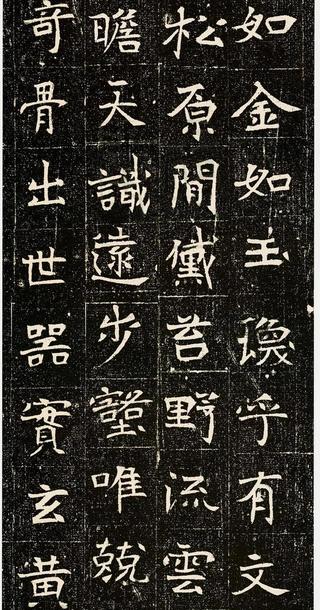 如金如玉乎有文
松原間黛苕野流雲
瞻天識遠步壑唯兢
奇骨出世器實玄黃